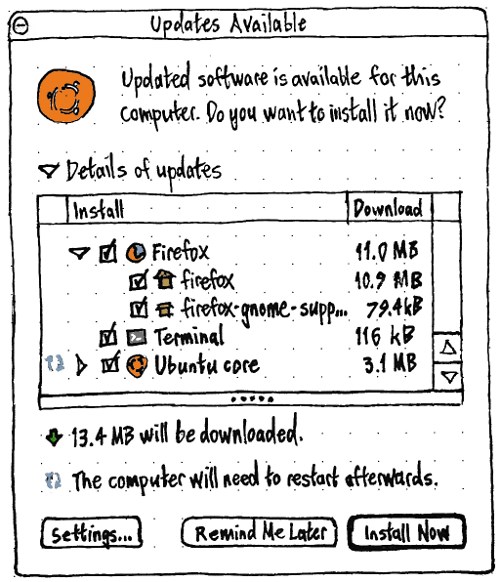 Updates Available
Updated software is available for this
computer. Do you want to install it now?
Details of updates
Install Download
Firefox 11.0 MB
firefox 10.9 MB
firefox-gnome-supp... 79.4kB
Terminal 116 kB
Ubuntu core 3.1 MB
13.4 MB will be downloaded.
The computer will need to restart afterwards.
Settings... Remind Me Later Install Now